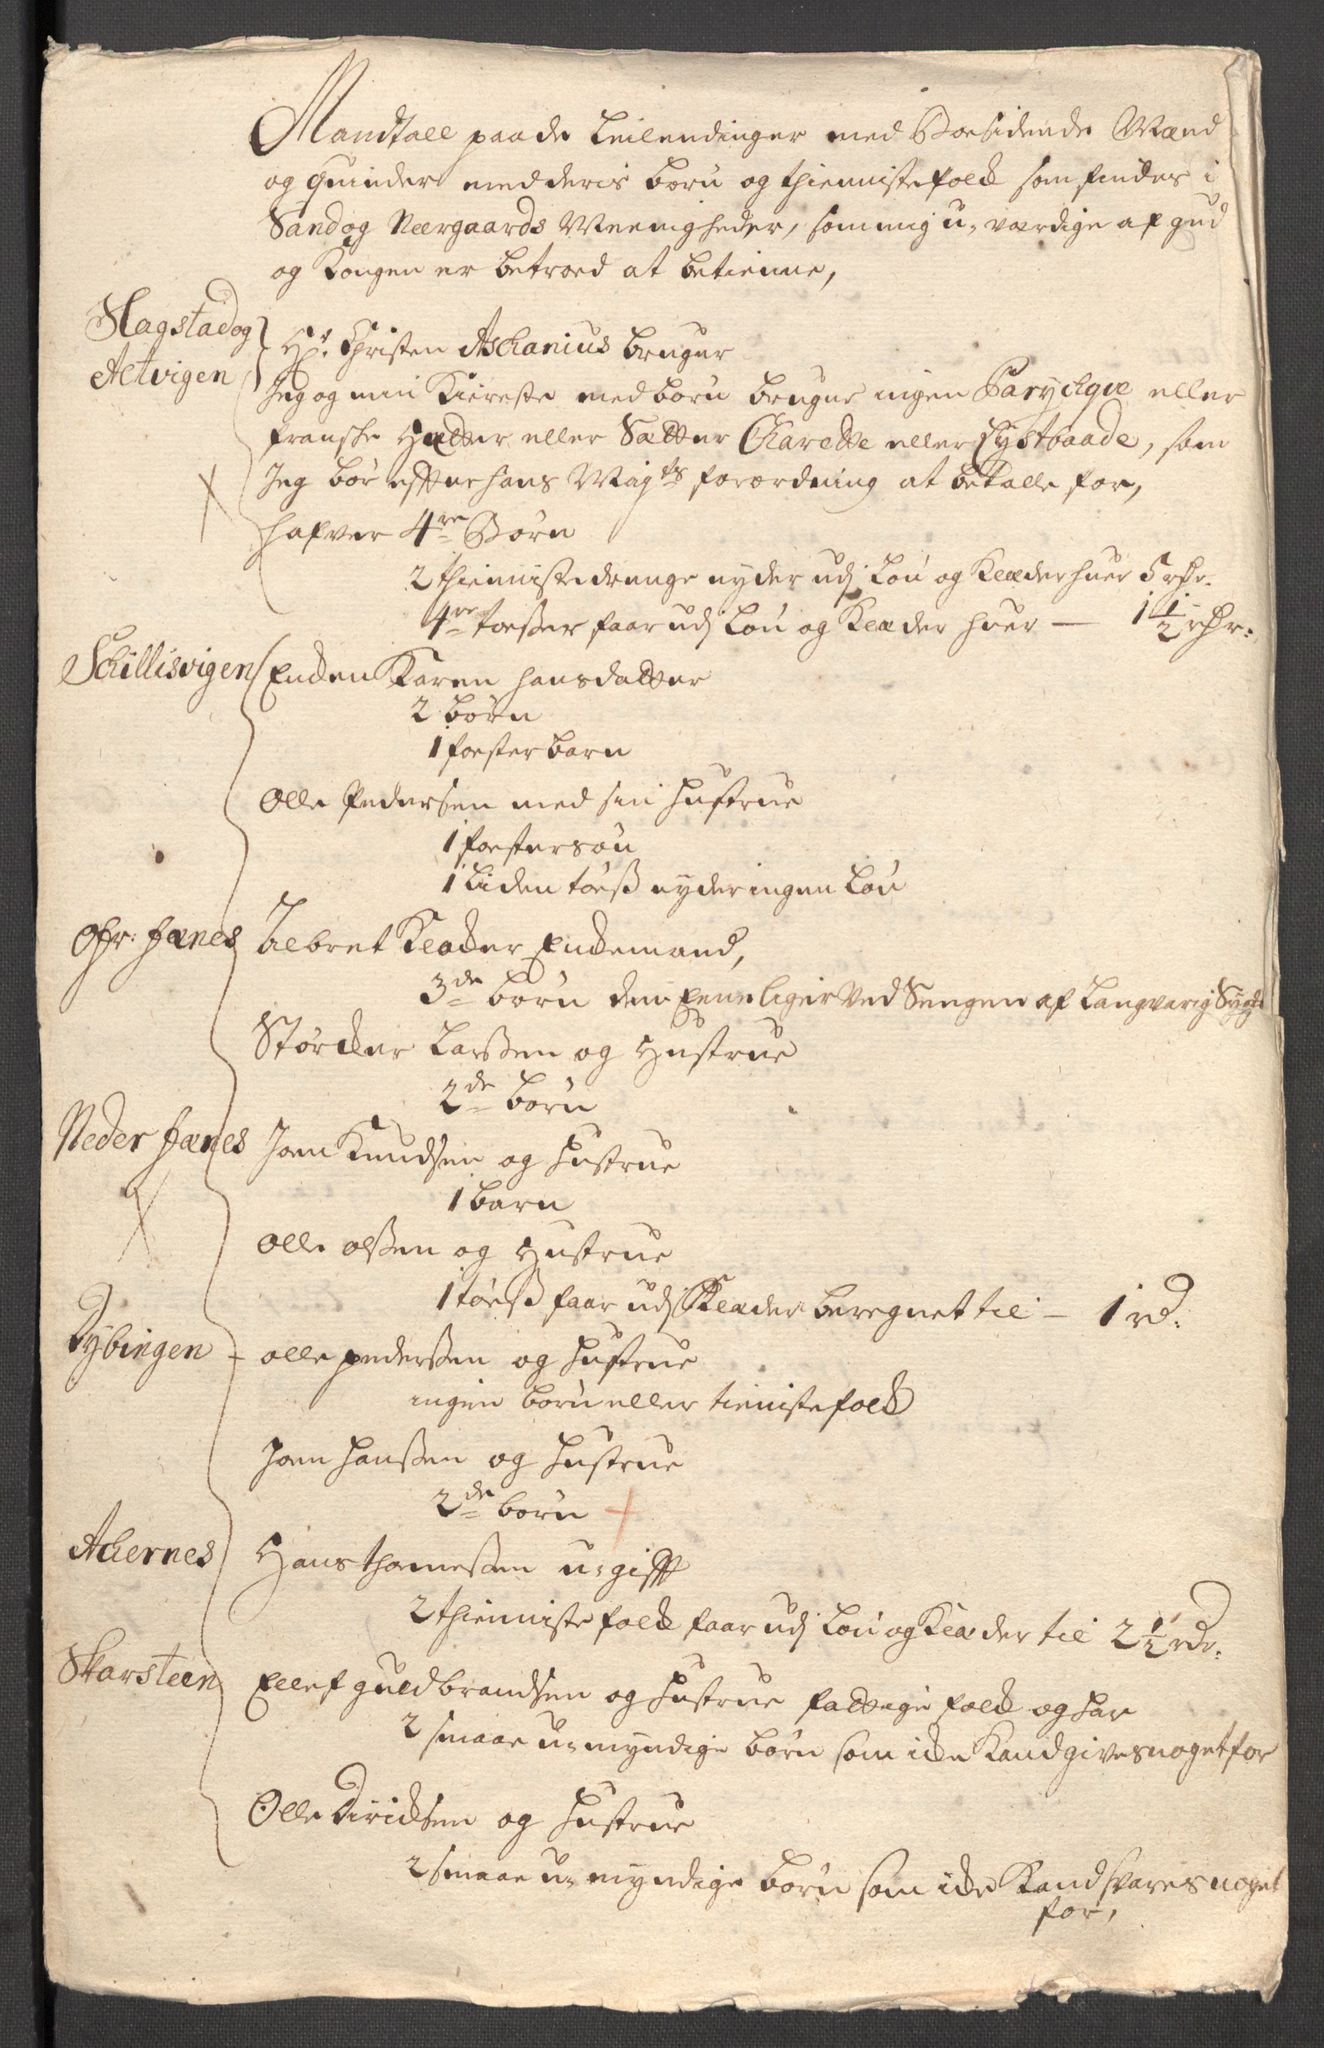 Mandtall paa de Leilendinger med Boesidende Mænd
og quinder med deris børn og thiennistefolck som findes i
Sand og Neergaards Meenigheder, som mig u-værdige af gud
og Kongen er betroed at betienne,
Slagstad og
Altvigen
Hr. Christen Aschanius bruger
Jeg og min Kiereste med børn bruger ingen Parycque eller
franske Hætter eller Sætter Charette eller Lystbaade, som
Jeg bør effter hans Mayts forordning at betalle for,
hafver 4re Børn
2 thiennistedrenge nyder udj Løn og Klæder huer 5 rdr.
4re tøesser faar udj Løn og Klæder huer — 1½ rdr.
Schillisvigen Encken Karen Hansdatter
2 børn
1 fosterbarn
Olle Pedersen med sin Hustrue
1 fostersøn
1 liden tøess nyder ingen Løn
Ofr: fænes Zebret Klocker Enckemand,
3de børn den Eene liger ved Sengen af Langvarig Sygd
Størcker Larssen og Hustrue
2de børn
Neder fænes Joen Knudsen og Hustrue
1 barn
Olle olssen og Hustrue
1 tøess faar udj Klæder beregnet til — 1 rd.
Dybingen olle pederssen og Hustrue
ingen børn eller tienistefolck
Joen Hanssen og Hustrue
2de børn
Achernes Hans thomessen u-gifft
2 thienniste folck faar udj Løn og Klæder til 2½ rdr.
Skarsteen Ellef guldbrandsen og Hustrue fattige folck og har
2 smaae u-myndige børn som icke Kand gives noget for
Olle Diricksen og Hustrue
2 smaae u-myndige børn som icke Kand svares noget
for,